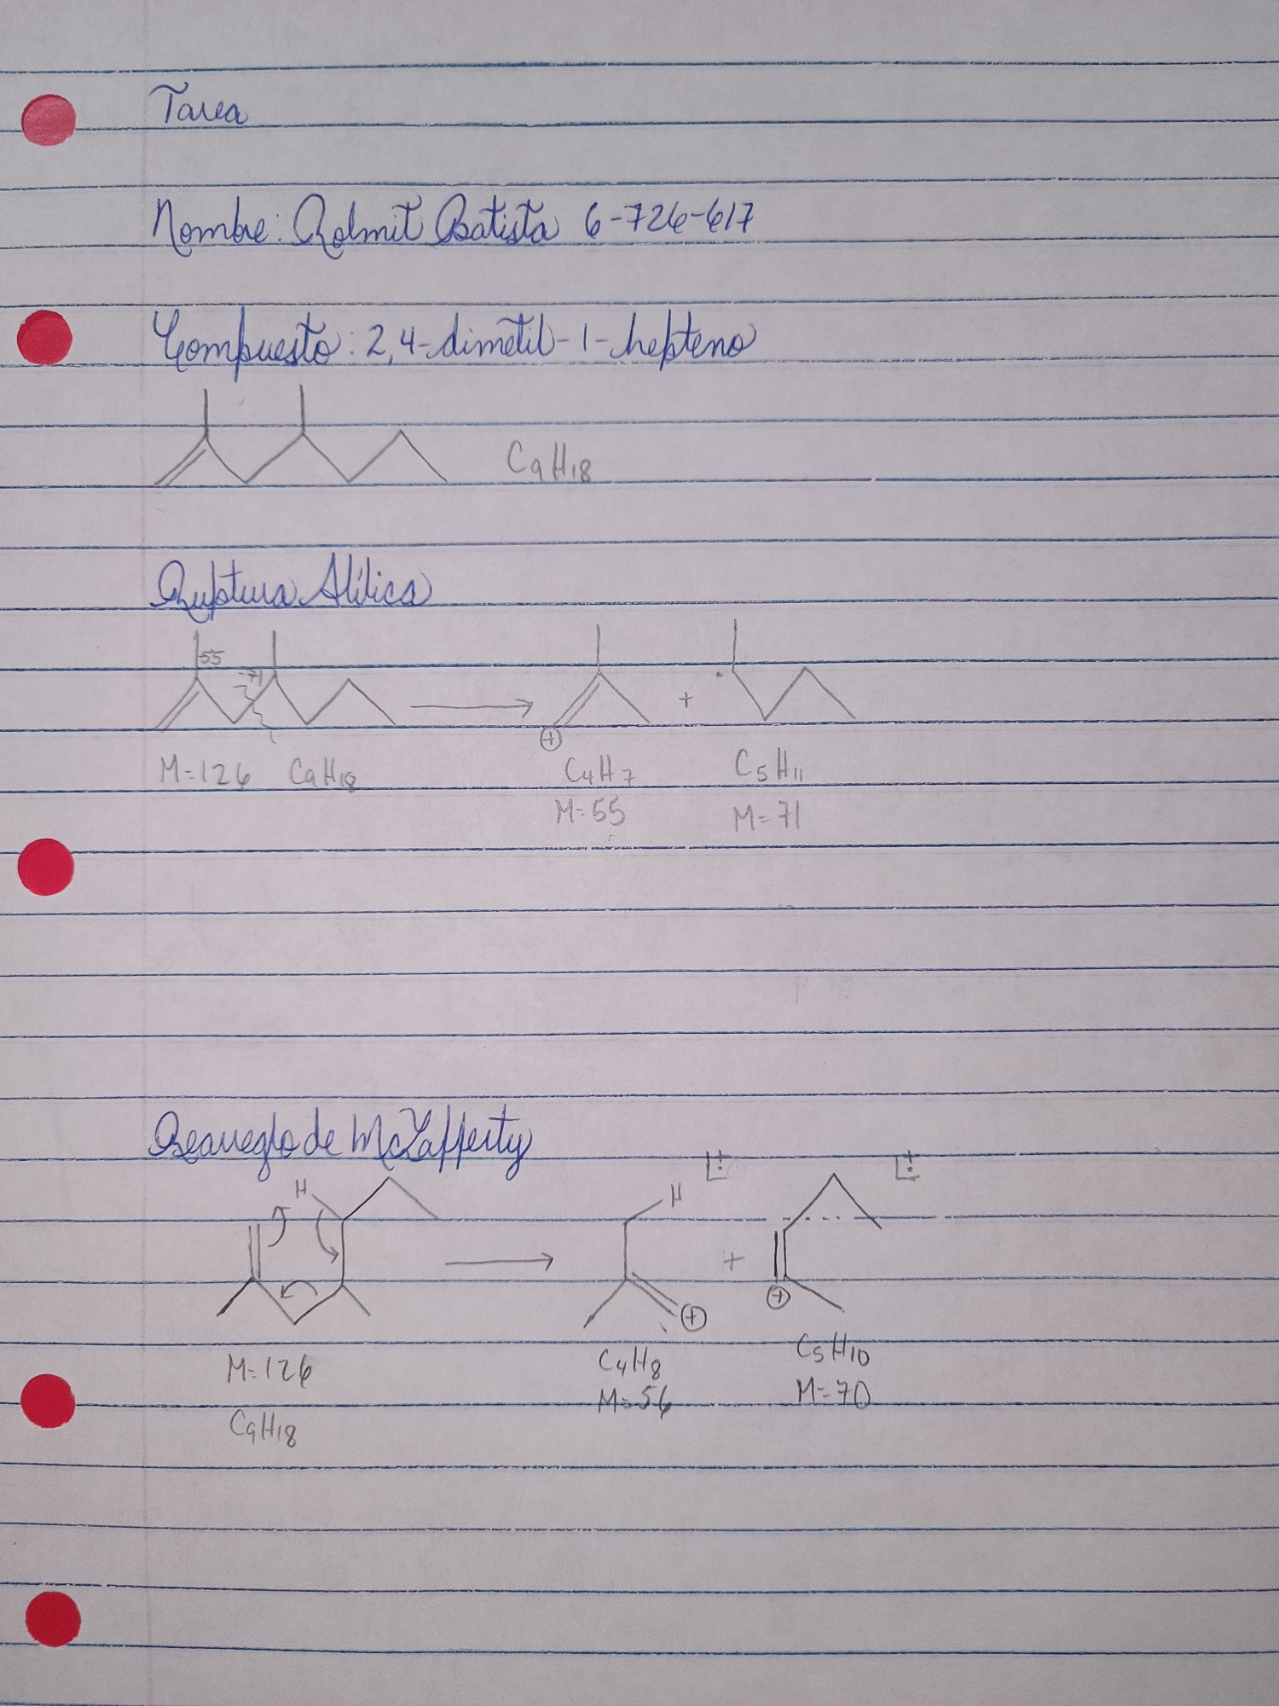 Tarea
Nombre: Rolmit Batista 6-726-617
Compuesto: 2,4-dimetil-1-hepteno
C9H18
Ruptura Alílica
55
-71
+
+
M=126 C9H18
C4H7
C5H11
M=55
M=71
Rearreglo de McLafferty
H
H
+
+
+
+
+
M=126
C4H8
C5H10
C9H18
M=56
M=70